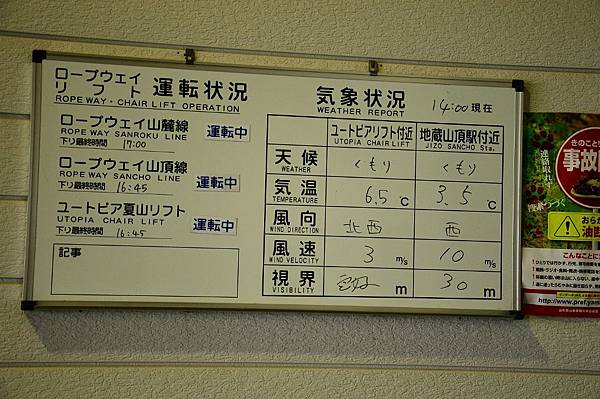 ロープウェイ
リフト 運転状況
ROPE WAY・CHAIR LIFT OPERATION
ロープウェイ山麓線
ROPE WAY SANROKU LINE
下り最終時間 17:00
運転中
ロープウェイ山頂線
ROPE WAY SANCHO LINE
下り最終時間 16:45
運転中
ユートピア夏山リフト
UTOPIA CHAIR LIFT
下り最終時間 16:45
運転中
記事
気象状況 14:00 現在
WEATHER REPORT
ユートピアリフト付近 地蔵山頂駅付近
UTOPIA CHAIR LIFT JIZO SANCHO Sta.
天候 くもり くもり
WEATHER
気温 6.5 ℃ 3.5 ℃
TEMPERATURE
風向 北西 西
WIND DIRECTION
風速 3 m/s 10 m/s
WIND VELOCITY
視界 m 30 m
VISIBILITY
きのことり
事故
連絡取れず
油断
こんなことに
http://www.pref.yam